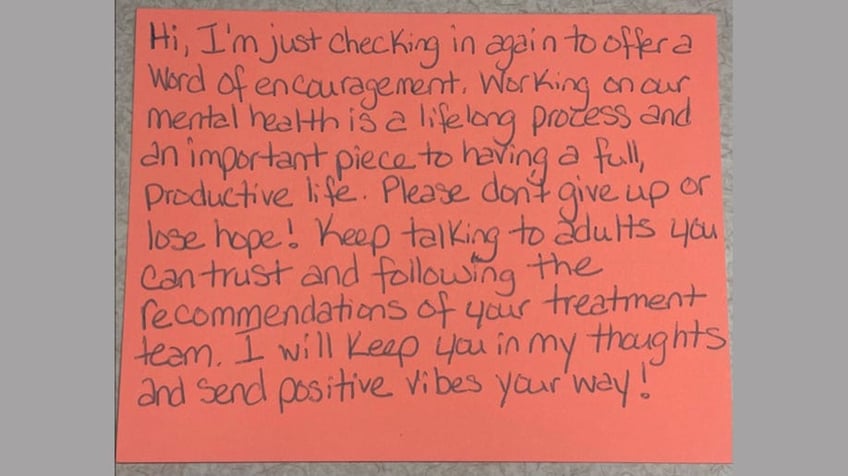 Hi, I'm just checking in again to offer a
word of encouragement. Working on our
mental health is a lifelong process and
an important piece to having a full,
productive life. Please don't give up or
lose hope! Keep talking to adults you
can trust and following the
recommendations of your treatment
team. I will keep you in my thoughts
and send positive vibes your way!